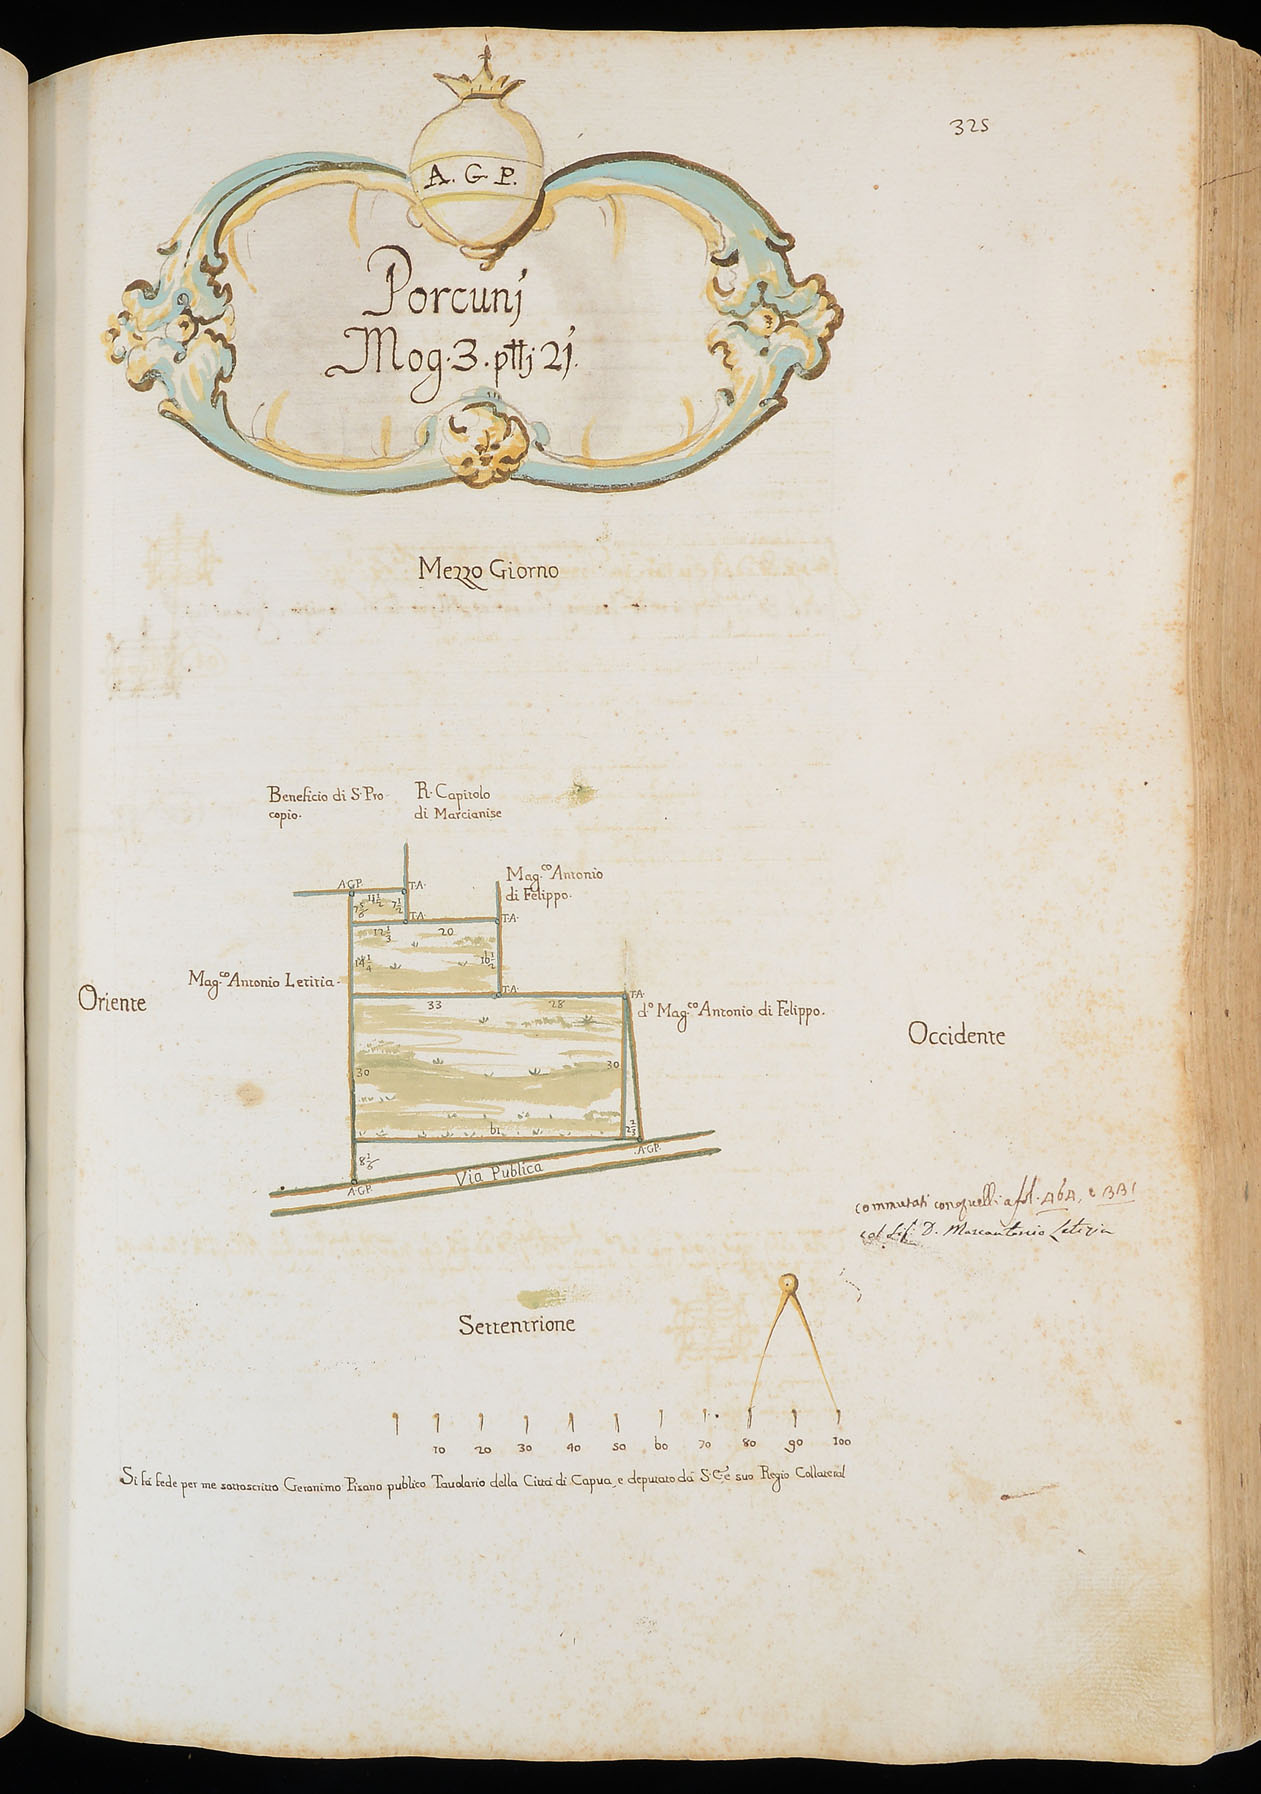 325
A. G. P.
Porcunj
Mog. 3. pttj 2j.
Mezzo Giorno
Beneficio di S. Pro-
copio.
R. Capitolo
di Marcianise
Mag.co Antonio
di Felippo.
A.G.P.
T.A.
4 1/2
7 1/2
T.A.
T.A.
12 1/3
20
14 1/4
16 1/2
Mag.co Antonio Letitia.
Oriente
T.A.
T.A.
33
28
do Mag.co Antonio di Felippo.
Occidente
30
30
61
2 2/3
A.G.P.
8 1/6
Via Publica
A.G.P.
commutati con quelli a fol. 464, e 331
col D. Marcantonio Letizia
Settentrione
10 20 30 40 50 60 70 80 90 100
Si fà fede per me sottoscritto Geronimo Pisano publico Tauolario della Città di Capua, e deputato dà S. C. è suo Regio Collateral